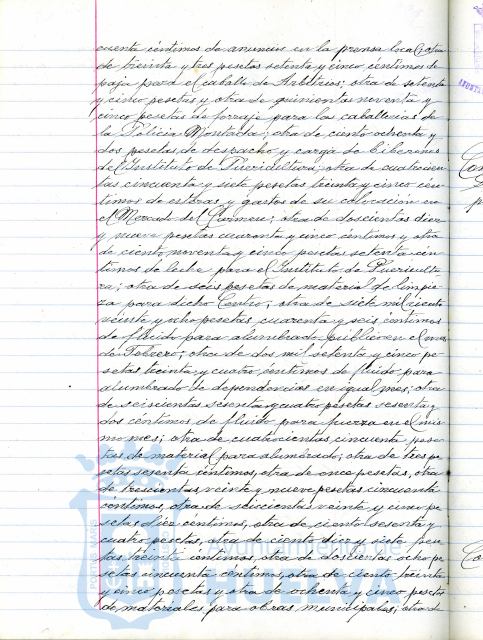 cuenta céntimos de anuncios en la prensa local; otra
de treinta y tres pesetas setenta y cinco céntimos de
paja para el caballo de Arbitrios; otra de setenta
y cinco pesetas y otra de quinientas noventa y
cinco pesetas de forraje para las caballerias de
la Policia Montada; otra de ciento ochenta y
dos pesetas de despacho y carga de biberones
del Instituto de Puericultura; otra de cuatrocien
tas cincuenta y siete pesetas treinta y cinco cén
timos de esteras y gastos de su colocación en
el Mercado del Carmen; otra de doscientas diez
y nueve pesetas cuarenta y cinco céntimos y otra
de ciento noventa y cinco pesetas setenta cén
timos de leche para el Instituto de Puericultu
ra; otra de seis pesetas de material de limpie
za para dicho Centro; otra de siete mil ciento
veinte y ocho pesetas cuarenta y seis céntimos
de fluido para alumbrado público en el mes
de Febrero; otra de dos mil setenta y cinco pe
setas treinta y cuatro céntimos de fluido para
alumbrado de dependencias en igual mes; otra
de seiscientas sesenta y cuatro pesetas sesenta y
dos céntimos de fluido para fuerza en el mis
mo mes; otra de cuatrocientas cincuenta pese
tas de material para alumbrado; otra de tres pe
setas sesenta céntimos, otra de once pesetas, otra
de trescientas veinte y nueve pesetas cincuenta
céntimos, otra de seiscientas veinte y cinco pe
setas diez céntimos, otra de ciento sesenta y
cuatro pesetas, otra de ciento diez y siete pese
tas treinta céntimos, otra de doscientas ocho pe
setas cincuenta céntimos, otra de ciento treinta
y cinco pesetas y otra de ochenta y cinco pesetas
de materiales para obras municipales; otra de